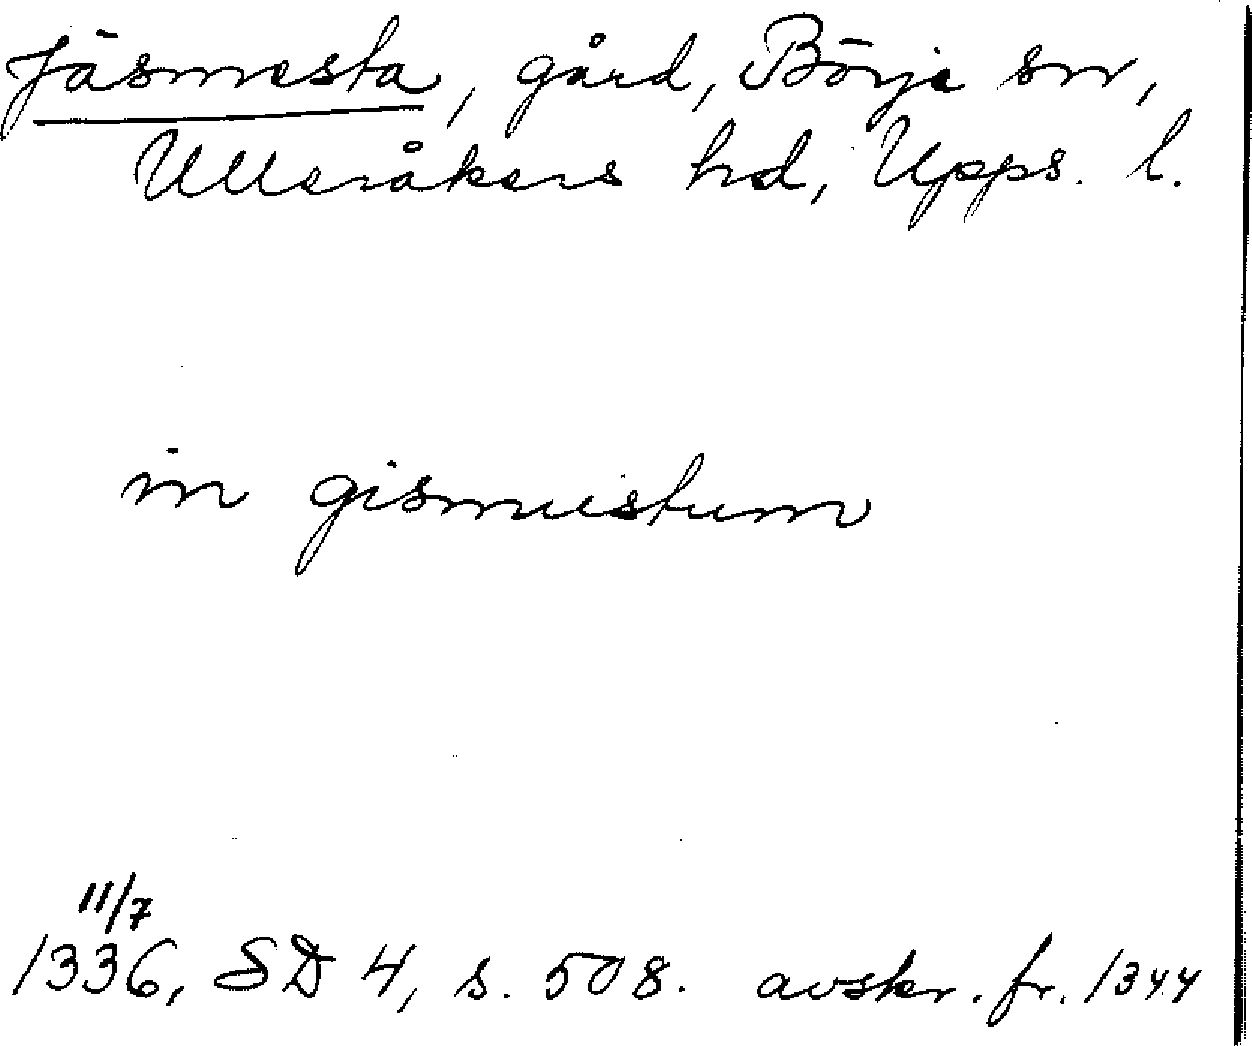 Jäsmesta, gård, Börje sn,
Ulleråkers hd, Upps. l.
in gismiistum
11/7
1336, SD 4, s. 508. avskr. fr. 1344